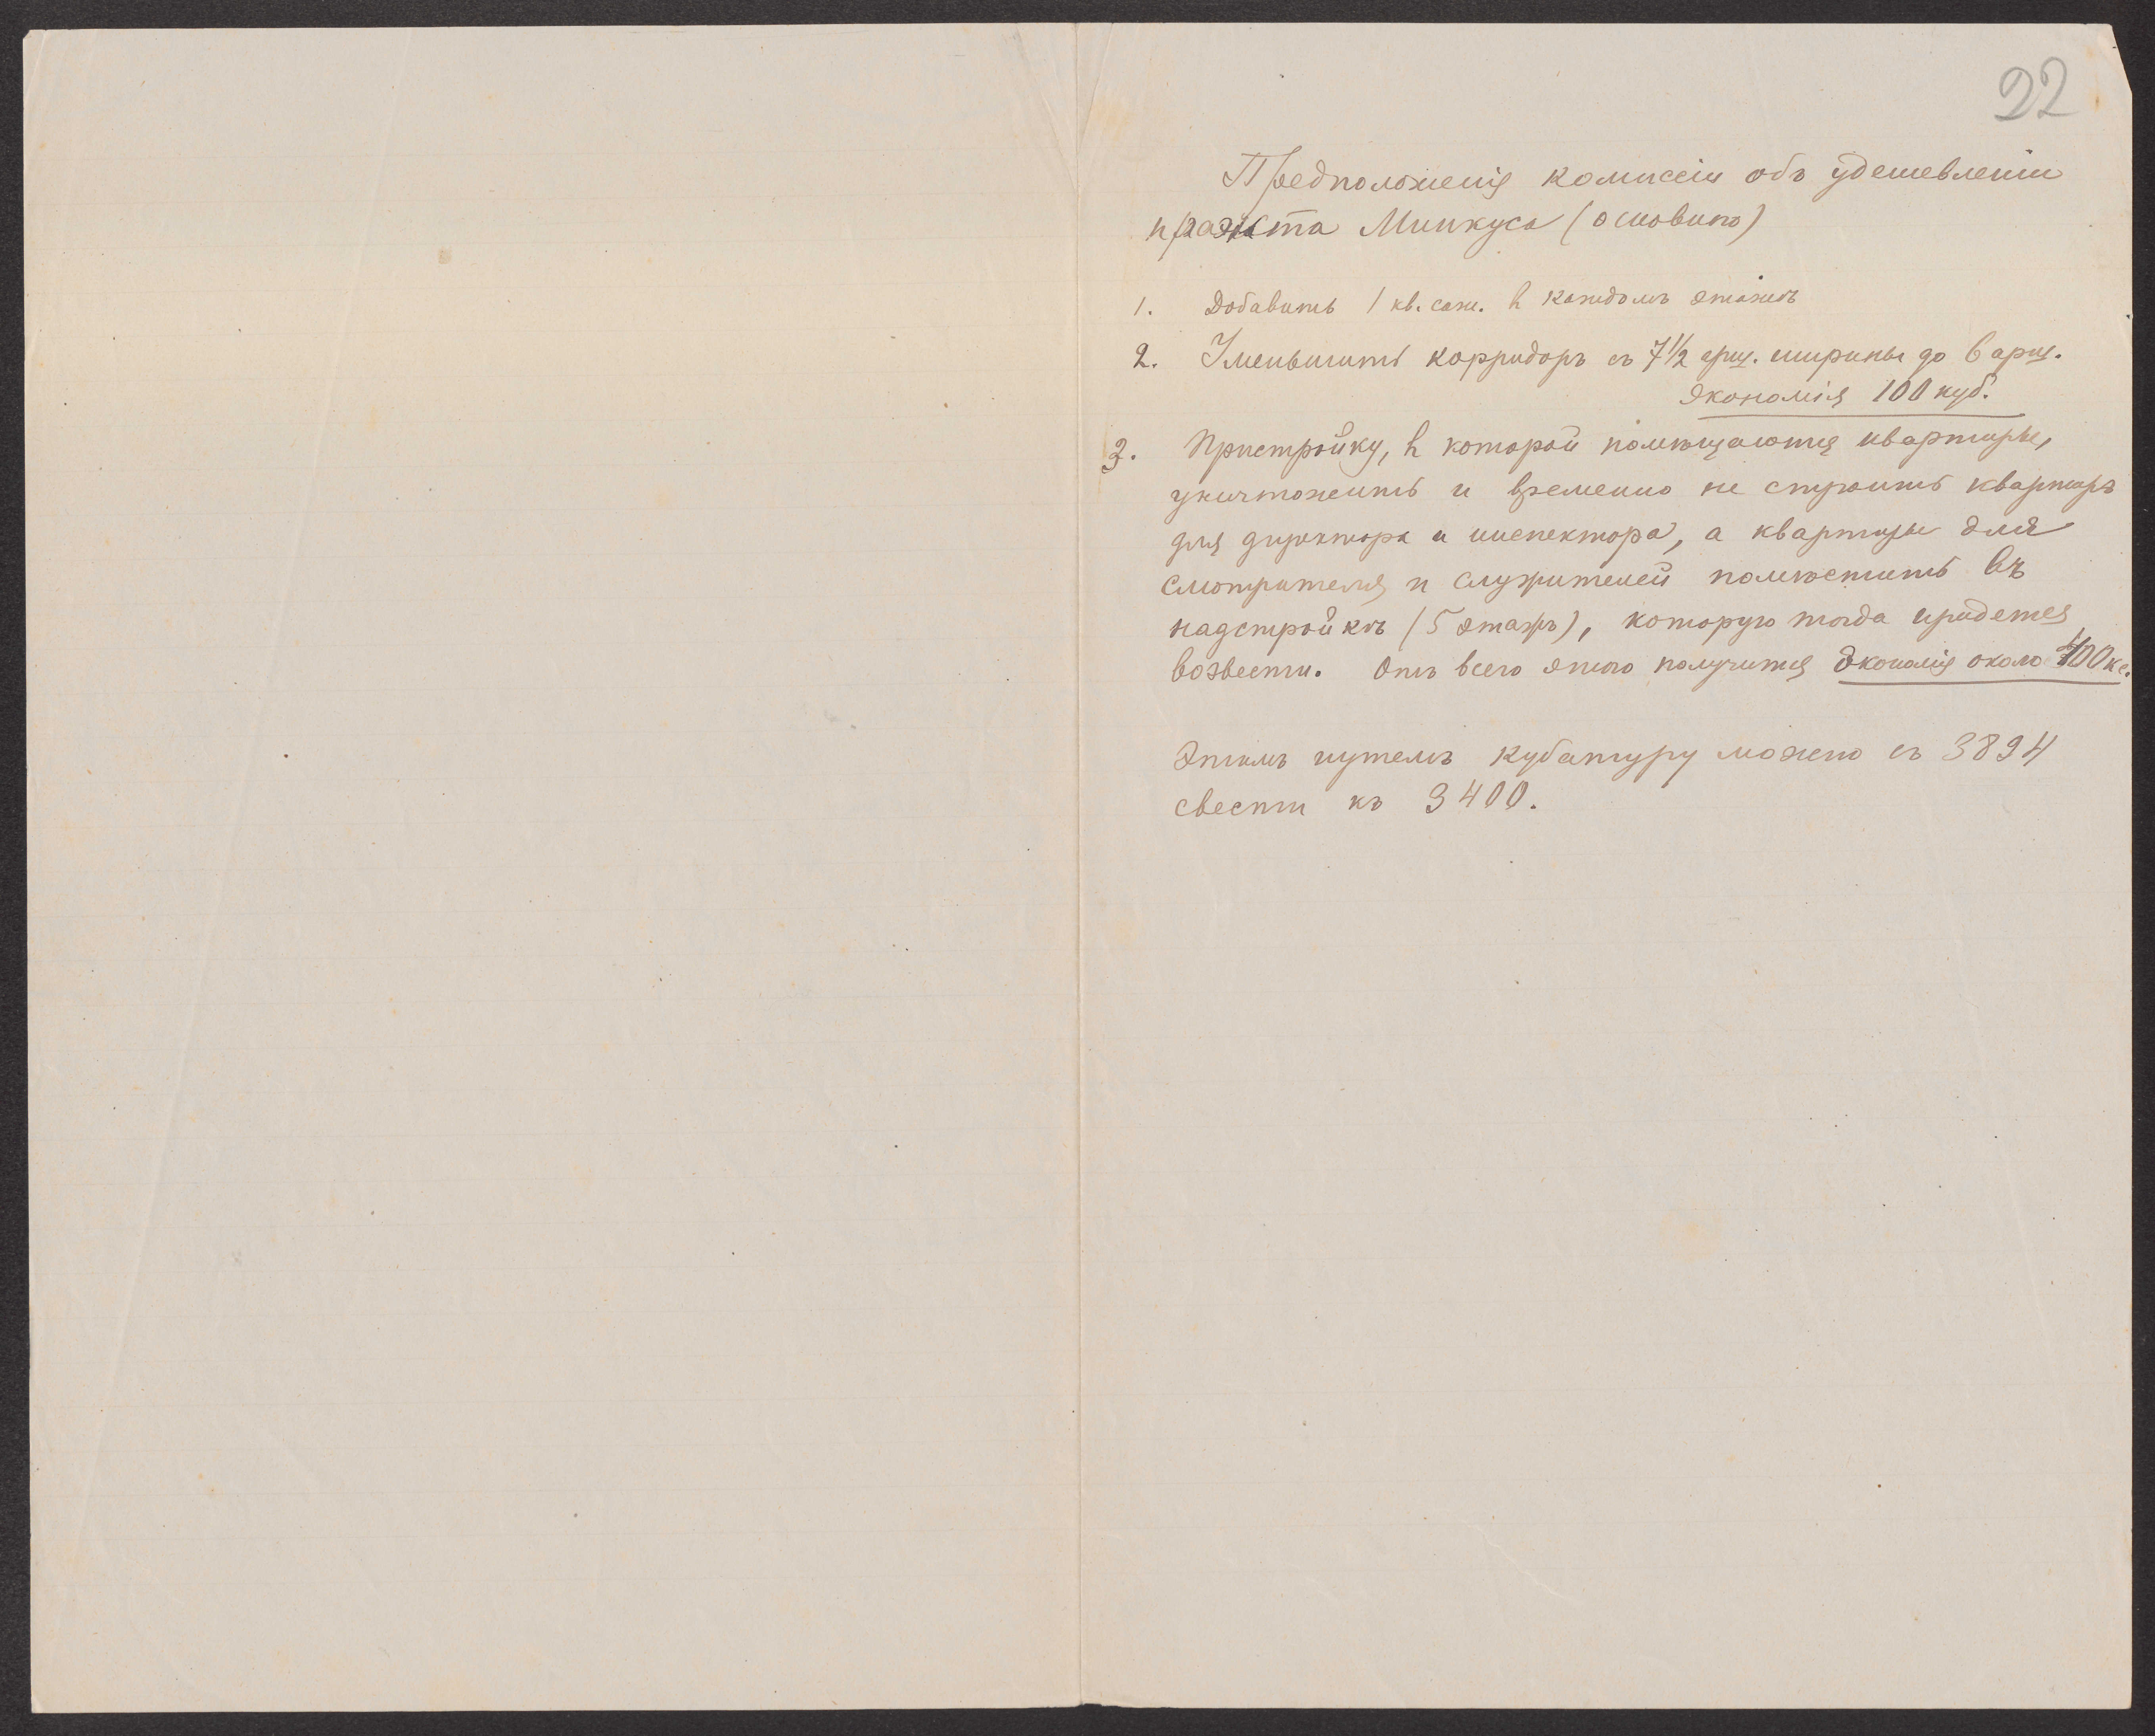 22
Предположенія комиссіи объ удешевленіи
проэкта Минкуса (основнаго)
1. Добавить 1 кв. саж. в каждомъ этажѣ
2. Уменьшить корридоръ съ 7 1/2 арш. ширины до 6 арш.
Экономія 100 куб.
3. Пристройку, в которой помѣщаются квартиры,
уничтожить и временно не строить квартиръ
для директора и инспектора, а квартиры для
смотрителя и служителей помѣстить въ
надстройкѣ (5 этажъ), которую тогда придется
возвести. Отъ всего этого получится экономія около 400 кс.
Этимъ путемъ кубатуру можно съ 3894
свести къ 3400.